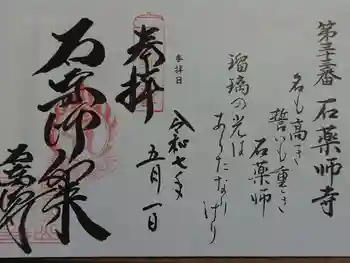 第三十三番 石薬師寺
名も高き
誓いも重き
石薬師
瑠璃の光は
あらたなりけり
参拝日
令和七年
五月一日
奉拝
石薬師如来